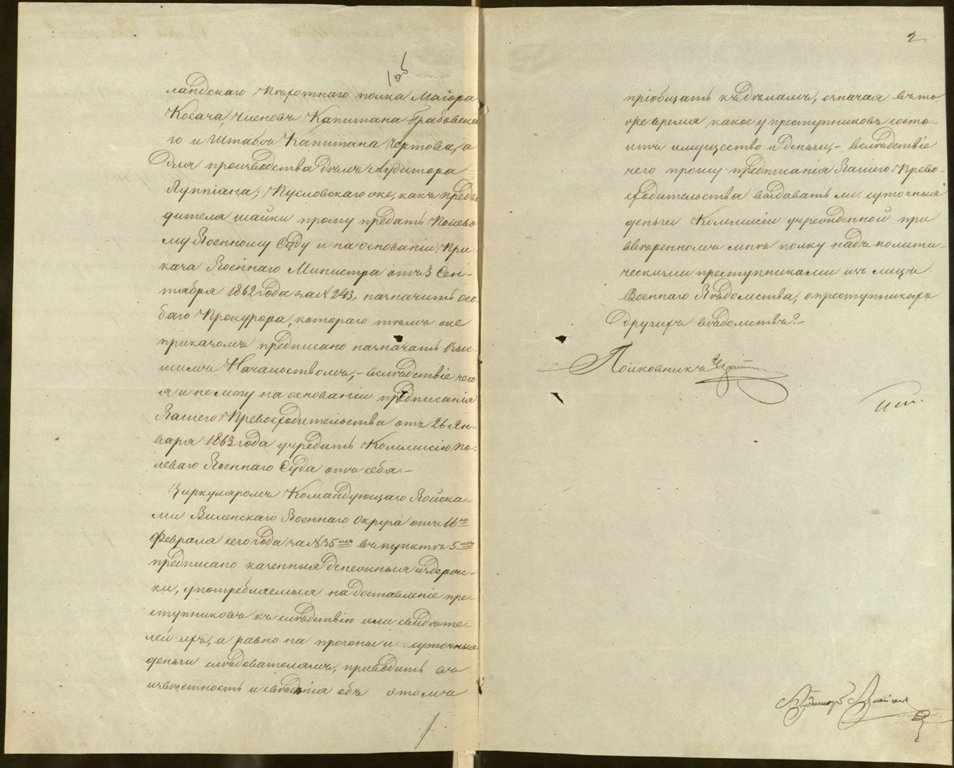 1об
ландскаго Пѣхотнаго полка Маіора
Косача членовъ Капитана Грабовска
го и Штабсъ Капитана Чертова, а
для производства дѣлъ Аудитора
же, какъ предво
дителя шайки прошу предать Полево
му Военному Суду и на основаніи При
каза Военнаго Министра отъ 3 Сен-
тября 1862 года за № 243, назначить осо
баго Прокурора, котораго тѣмъ же
приказомъ предписано назначать Выс
шимъ Начальствомъ, - вслѣдствіе чего
я и не могу на основаніи предписанія
Вашего Превосходительства отъ 26 Ян
варя 1863 года учредить Коммисію По-
леваго Военнаго Суда отъ себя. -
Циркуляромъ Командующаго Войска
ми Виленскаго Военнаго Округа отъ 16го
Февраля сего года за № 35мъ въ пунктѣ 5мъ
предписано казенныя денежныя издерж-
ки, употребляемыя на доставленіе пре-
ступниковъ къ слѣдствію или свидѣте
лей ихъ, а равно на прогоны и суточныя
деньги слѣдователямъ, приводить въ
извѣстность и свѣдѣнія объ этомъ
2
пріобщать къ дѣламъ, означая въ то
же время какое у преступниковъ состо
итъ имущество и деньги, - вслѣдствіе
чего прошу предписанія Вашего Прево-
сходительства выдавать ли суточныя
деньги Коммисіи учрежденной при
ввѣренномъ мнѣ полку надъ полити-
ческими преступниками изъ лицъ
Военнаго Вѣдомства, о преступникахъ
другихъ вѣдомствъ? -
Полковникъ
Аудиторъ